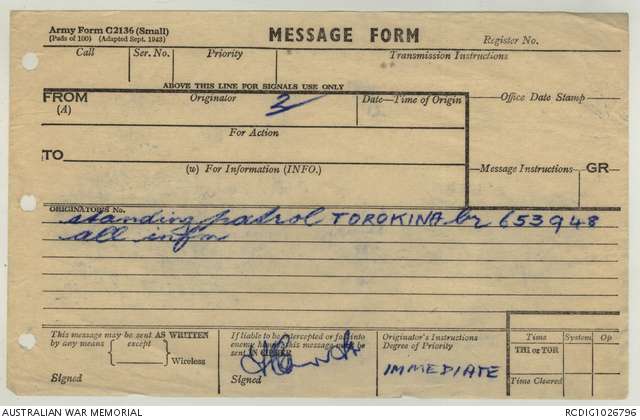 Army Form C2136 (Small)
(Pads of 100) (Adapted Sept. 1943)
MESSAGE FORM
Register No.
Call
Ser. No.
Priority
Transmission Instructions
ABOVE THIS LINE FOR SIGNALS USE ONLY
FROM
(A)
Originator
2
Date—Time of Origin
Office Date Stamp
For Action
TO
(w) For Information (INFO.)
Message Instructions
GR
ORIGINATOR'S No.
standing patrol TOROKINA br 653948
all infm
This message may be sent AS WRITTEN
by any means
except
Wireless
Signed
If liable to be intercepted or fall into
enemy hands this message must be
sent IN CIPHER
Signed
Originator's Instructions
Degree of Priority
IMMEDIATE
Time
System
Op
THI or TOR
Time Cleared
AUSTRALIAN WAR MEMORIAL
RCDIG1026796